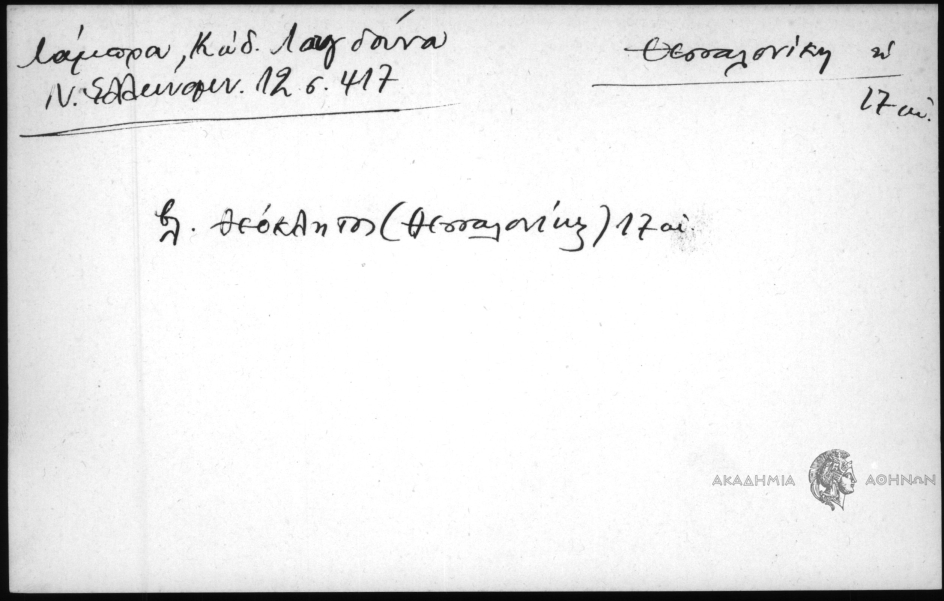 Λάμπρου, Κώδ. Λαγδούνα
Ν. Ελληνομν. 12 σ. 417
Θεσσαλονίκη
17 αἰ.
βλ. Θεόκλητος (Θεσσαλονίκης) 17 αἰ.
ΑΚΑΔΗΜΙΑ ΑΘΗΝΩΝ